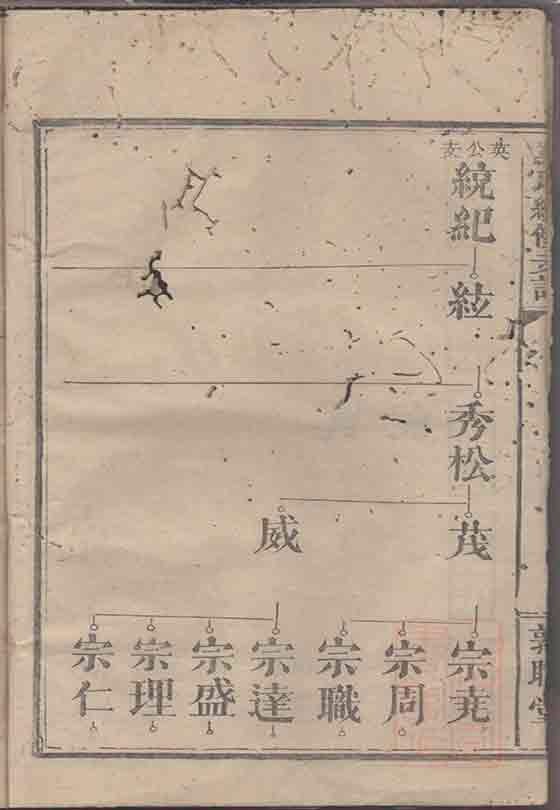 英公支
統紀
紘
秀松
茂
威
宗堯
宗周
宗職
宗達
宗盛
宗理
宗仁
敦睦堂